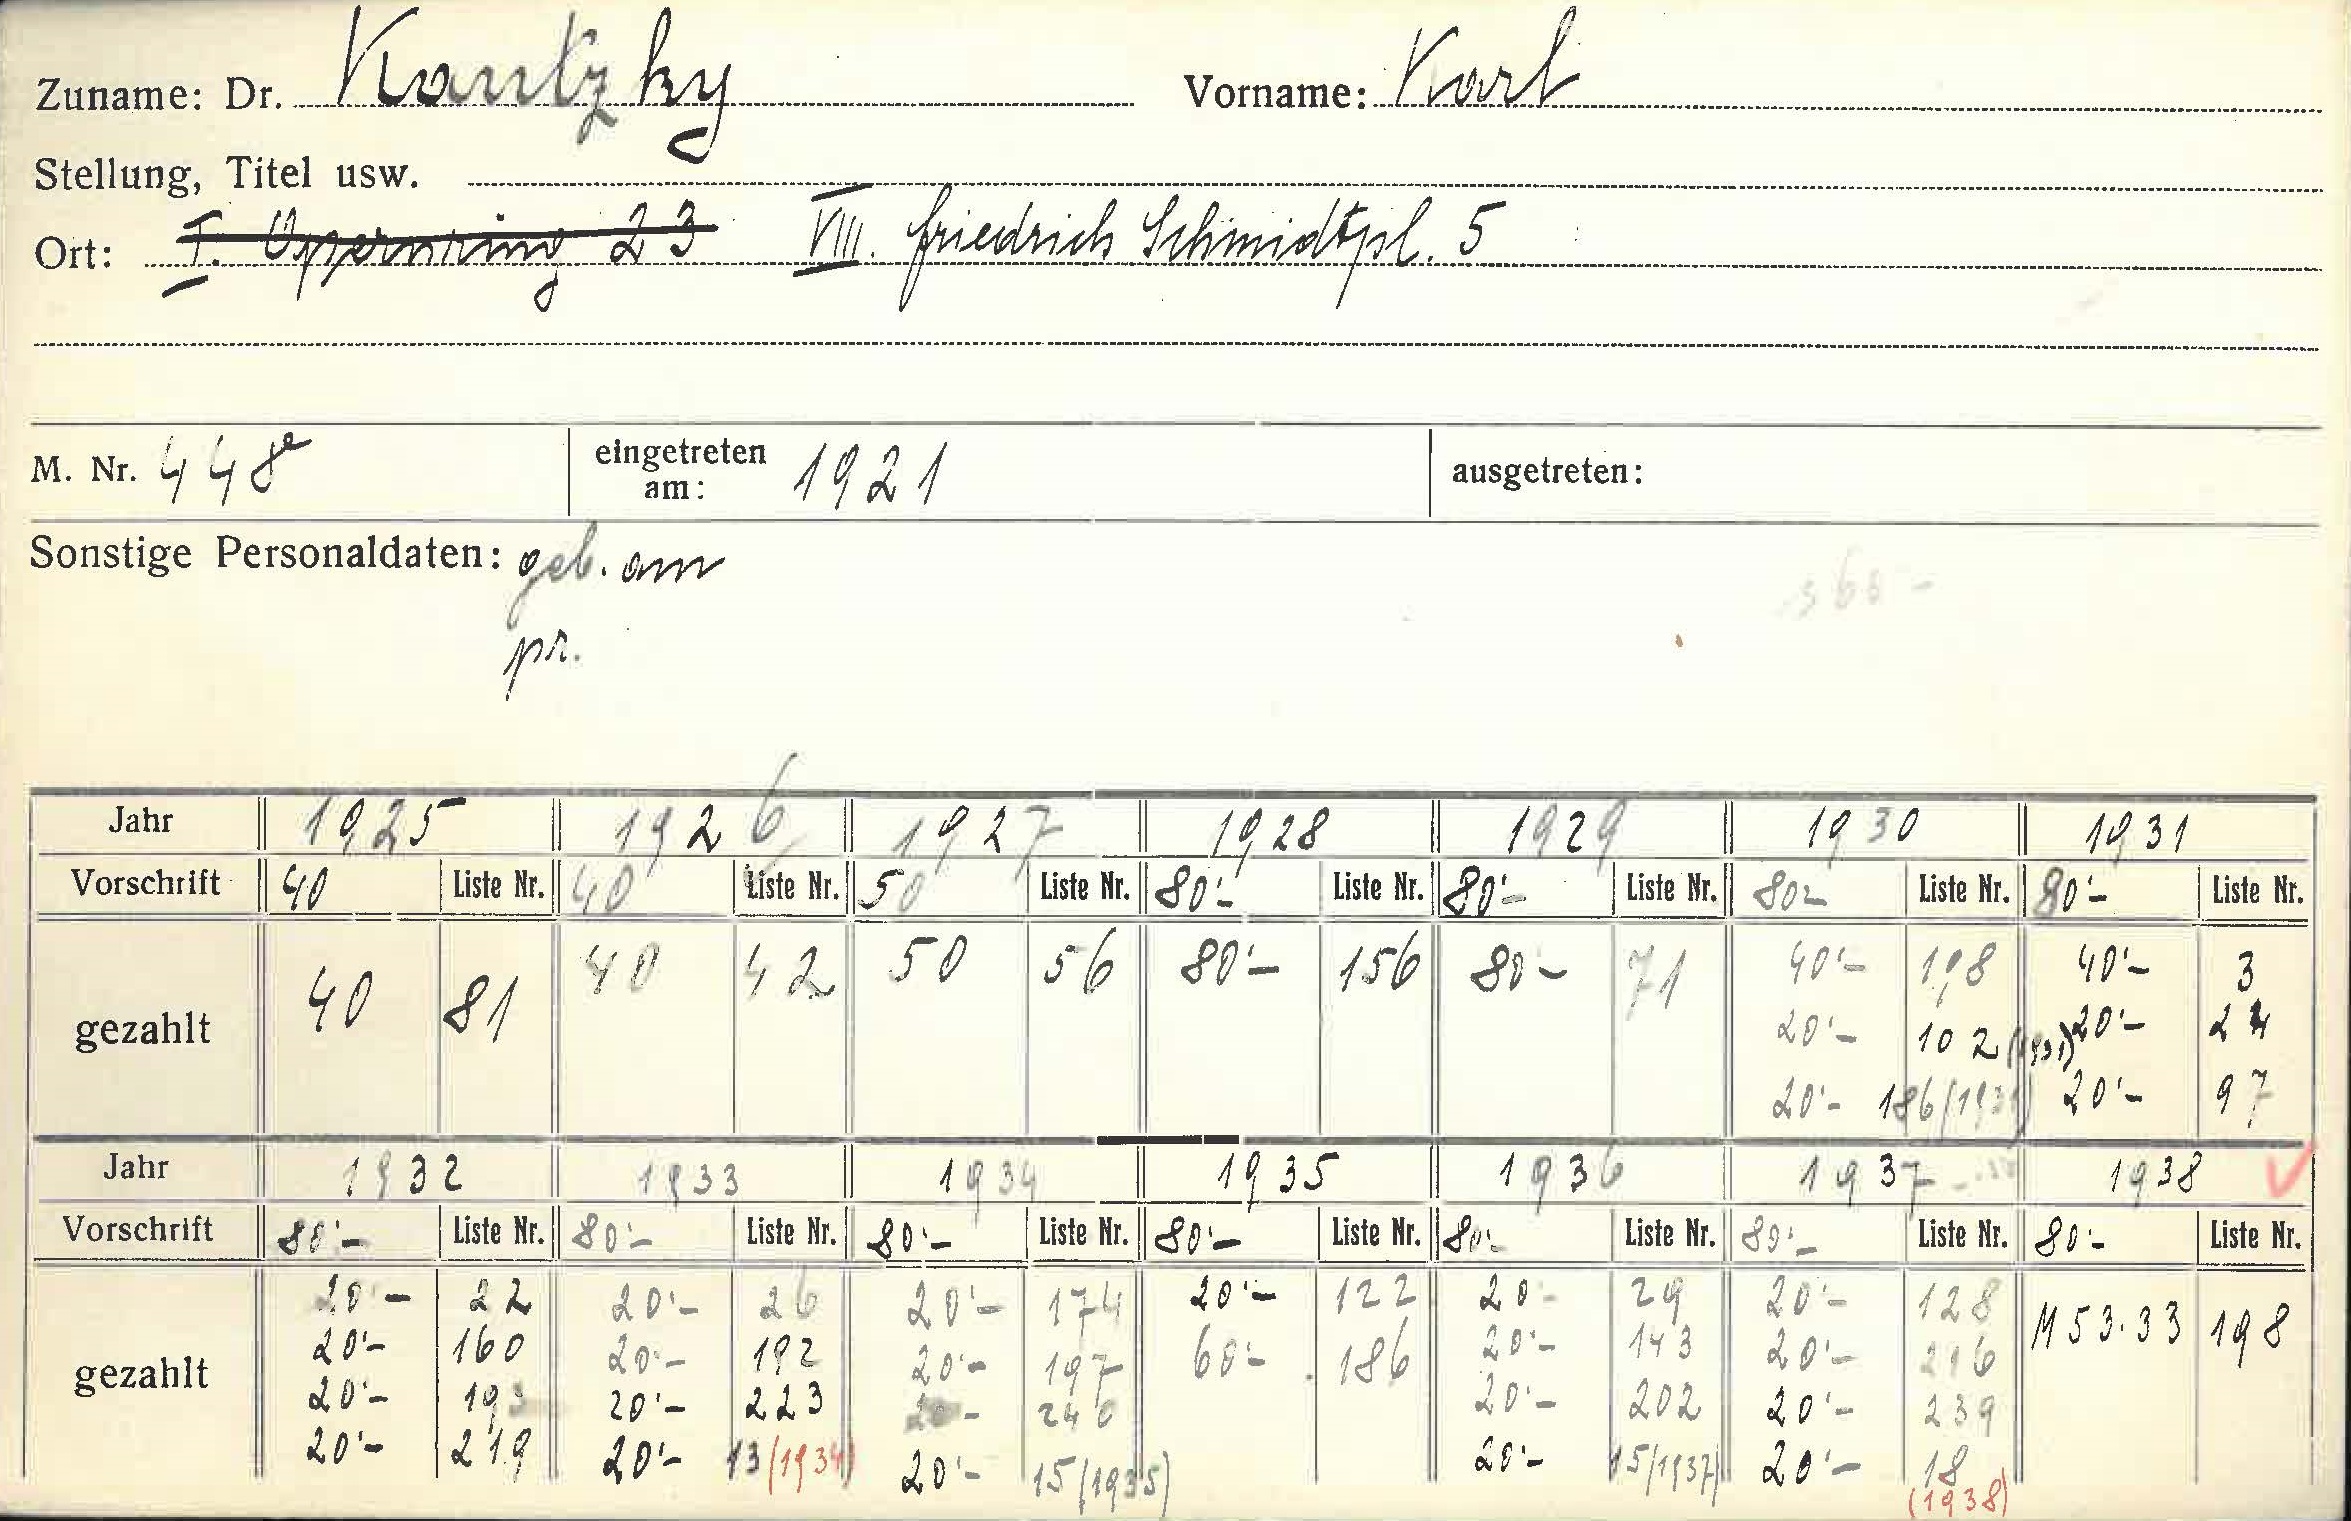 Zuname: Dr. Kautzky Vorname: Karl
Stellung, Titel usw.
Ort: I. Opernring 23 VIII. Friedrich Schmidtpl. 5
M. Nr. 448e eingetreten am: 1921 ausgetreten:
Sonstige Personaldaten: geb. am
pr.
Jahr 1925 1926 1927 1928 1929 1930 1931
Vorschrift 40 Liste Nr. 40 Liste Nr. 50 Liste Nr. 80'- Liste Nr. 80'- Liste Nr. 80- Liste Nr. 80'- Liste Nr.
gezahlt 40 81 40 42 50 56 80'- 156 80- 71 40'- 198 40'- 3
20'- 102 (1931) 20'- 24
20'- 186/(1931) 20'- 97
Jahr 1932 1933 1934 1935 1936 1937 1938
Vorschrift 80'- Liste Nr. 80'- Liste Nr. 80'- Liste Nr. 80'- Liste Nr. 80'- Liste Nr. 80'- Liste Nr. 80'- Liste Nr.
gezahlt 20'- 22 20'- 26 20'- 174 20'- 122 20- 29 20'- 128 M 53.33 198
20'- 160 20'- 192 20'- 197 60'- 186 20'- 143 20'- 216
20'- 193 20'- 223 20- 240 20'- 202 20'- 239
20'- 219 20'- 13/(1934) 20'- 15/(1935) 20'- 15/(1937) 20'- 18
(1938)